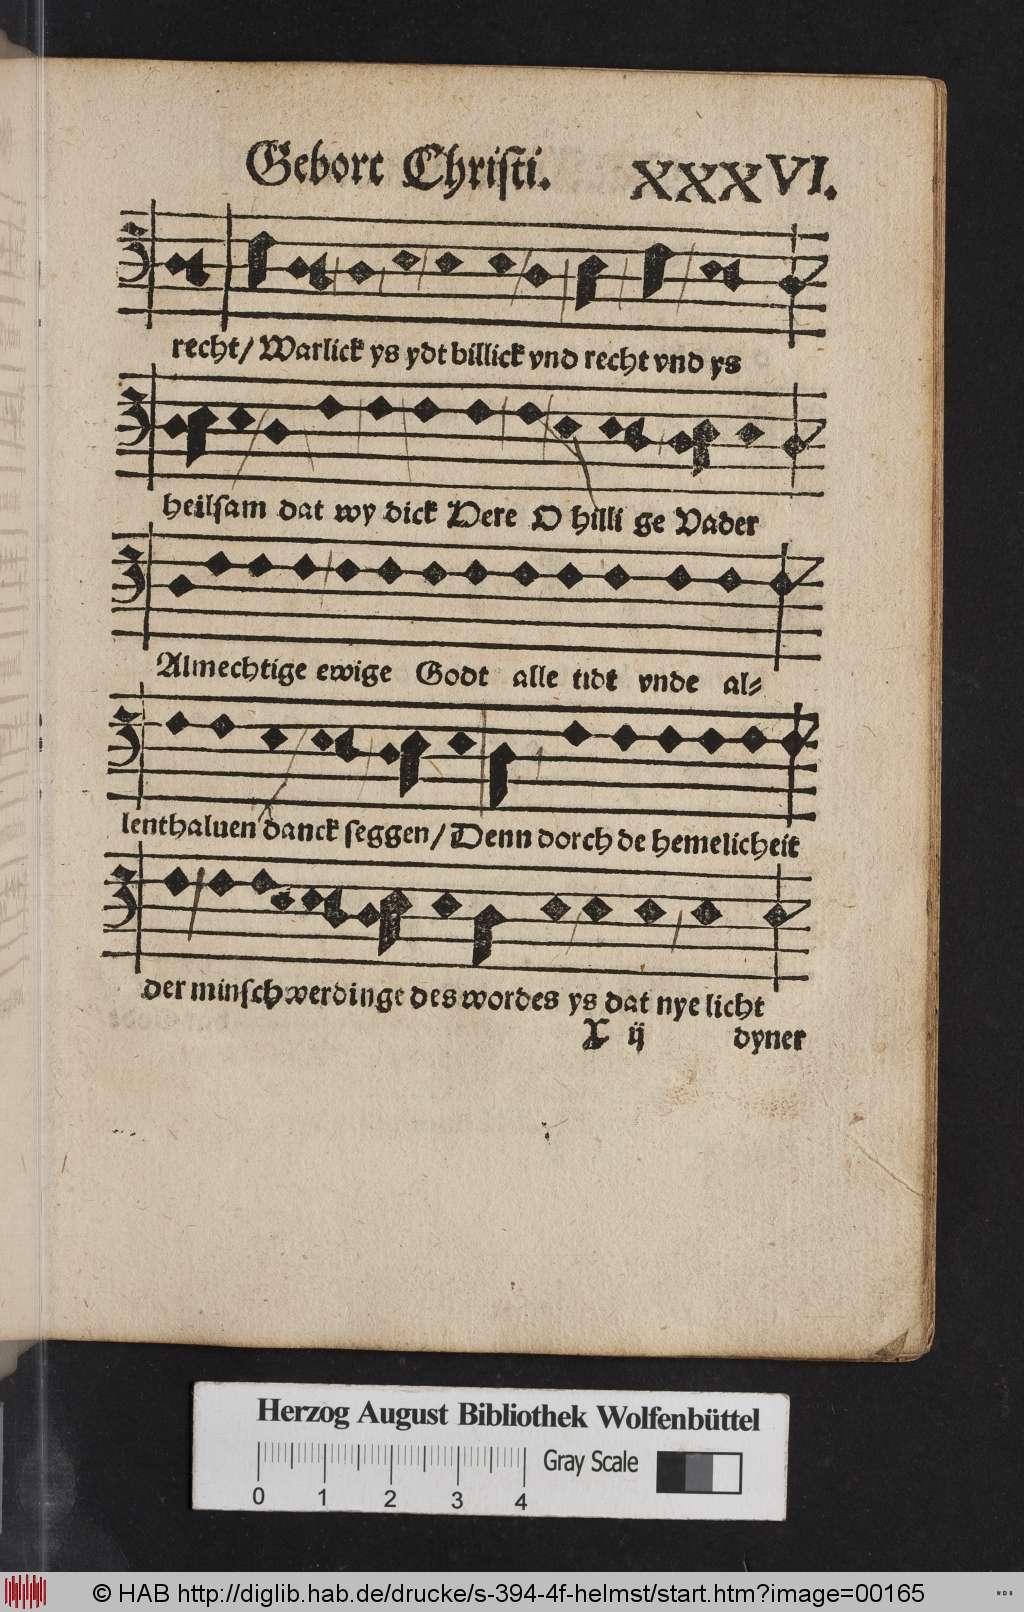 Gebort Christi. XXXVI.
recht/ Warlick ys ydt billick vnd recht vnd ys
heilsam dat wy dick Here O hilli ge Vader
Almechtige ewige Godt alle tidt vnde al⸗
lenthaluen danck seggen/ Denn dorch de hemelicheit
der minschwerdinge des wordes ys dat nye licht
X ij dyner
Herzog August Bibliothek Wolfenbüttel
0 1 2 3 4 Gray Scale
© HAB http://diglib.hab.de/drucke/s-394-4f-helmst/start.htm?image=00165